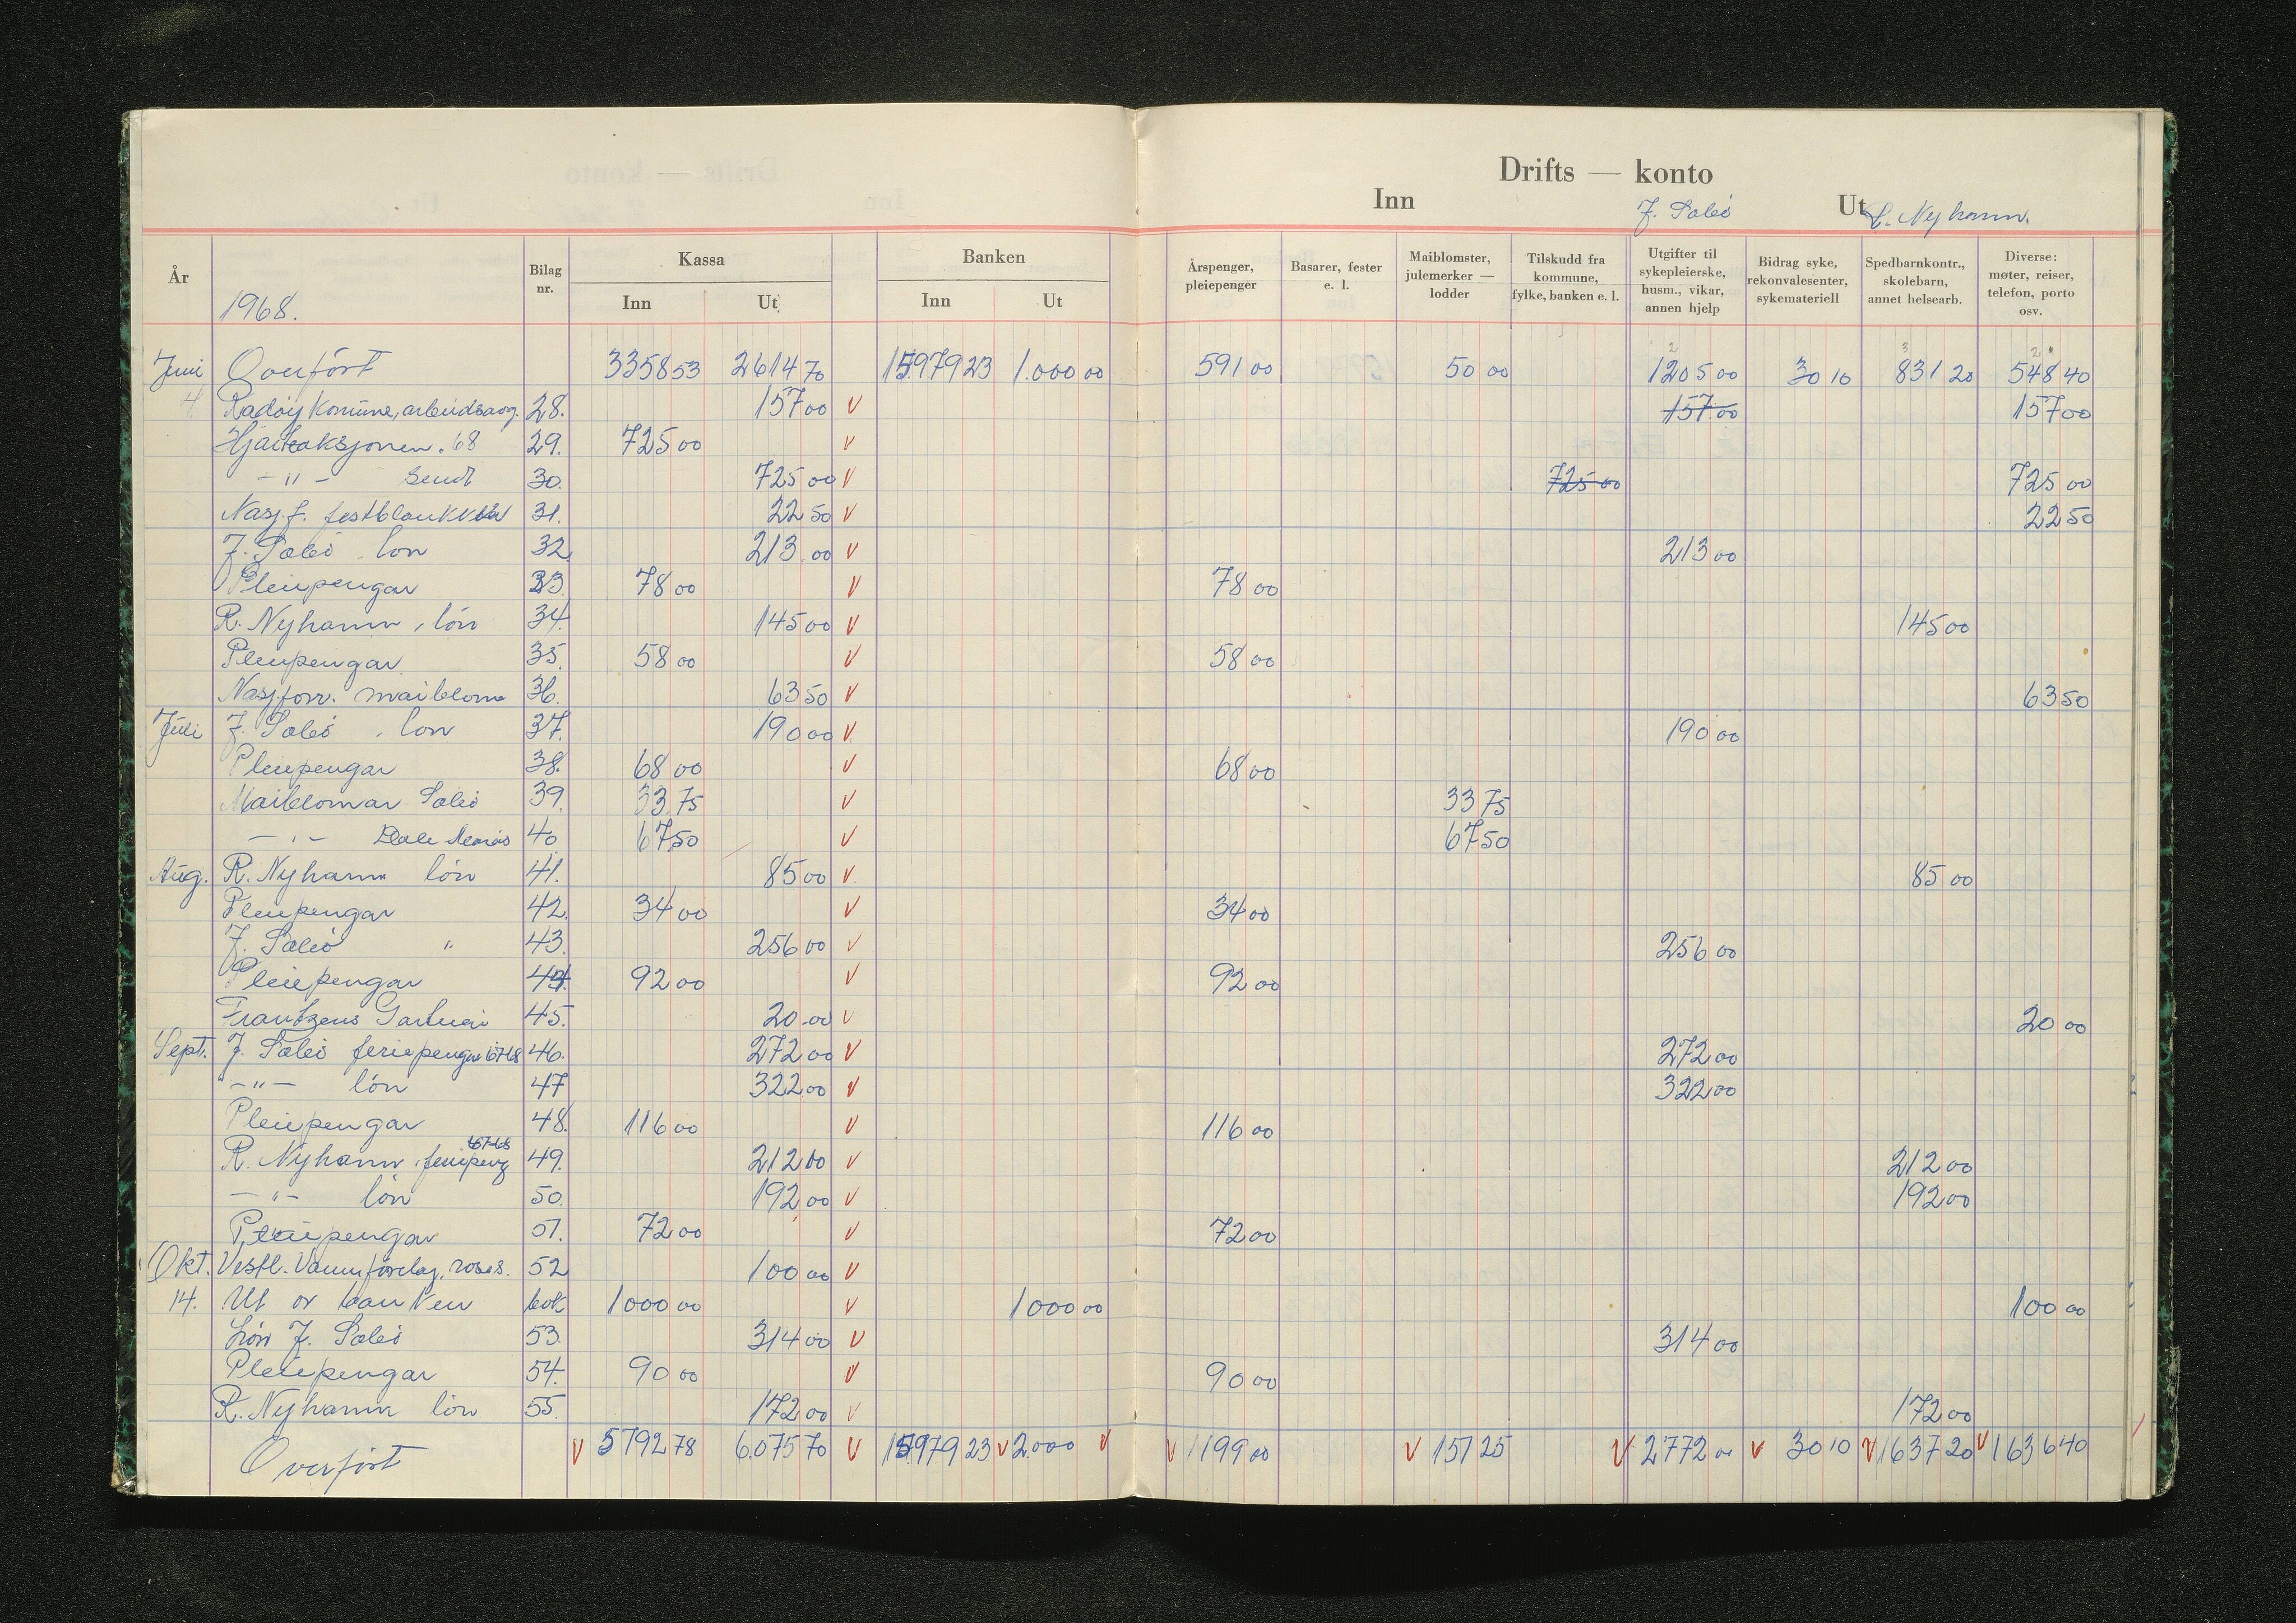 Drifts — konto
Inn J. Sæbø Ut R. Nyhamn.
År 1968. Bilag nr. Kassa Inn Ut Banken Inn Ut Årspenger, pleiepenger Basarer, fester e. l. Maiblomster, julemerker — lodder Tilskudd fra kommune, fylke, banken e. l. Utgifter til sykepleierske, husm., vikar, annen hjelp Bidrag syke, rekonvalesenter, sykemateriell Spedbarnkontr., skolebarn, annet helsearb. Diverse: møter, reiser, telefon, porto osv.
Juni Overført 3358 53 2614 70 15979 23 1.000 00 591 00 50 00 1205 00 30 10 831 20 548 40
4. Radøy Komune, arbeidsavg. 28. 157 00 V 157 00 157 00
Hjarteaksjonen. 68 29. 725 00 V
- " - Sendt 30. 725 00 V 725 00 725 00
Nasj. f. festblankett 31. 22 50 V 22 50
J. Sæbø, løn 32 213 00 V 213 00
Pleiepengar 33. 78 00 V 78 00
R. Nyhamn, løn 34. 145 00 V 145 00
Pleiepengar 35. 58 00 V 58 00
Nasj.forr. maiblom 36. 63 50 V 63 50
Juli J. Sæbø, løn 37. 190 00 V 190 00
Pleiepengar 38. 68 00 V 68 00
Maiblomar Sæbø 39. 33 75 V 33 75
- " - 40 67 50 V 67 50
Aug. R. Nyhamn løn 41. 85 00 V 85 00
Pleiepengar 42. 34 00 V 34 00
J. Sæbø " 43. 256 00 V 256 00
Pleiepengar 44. 92 00 V 92 00
Frantzens Gartneri 45. 20 00 V 20 00
Sept. J. Sæbø feriepengar 67-68 46. 272 00 V 272 00
- " - løn 47 322 00 V 322 00
Pleiepengar 48. 116 00 V 116 00
R. Nyhamn, feriepeng 67-68 49. 212 00 V 212 00
- " - løn 50. 192 00 V 192 00
Pleiepengar 51. 72 00 V 72 00
Okt. Vestl. Vanførelag, 52 100 00 V
14. Ut or banken bok 1000 00 V 1000 00 100 00
Løn J. Sæbø 53. 314 00 V 314 00
Pleiepengar 54. 90 00 V 90 00
R. Nyhamn løn 55. 172 00 V 172 00
Overført V 5792 78 6.075 70 V 15979 23 V 2.000 V V 1199 00 V 151 25 V 2772 00 V 30 10 V 1637 20 V 1636 40